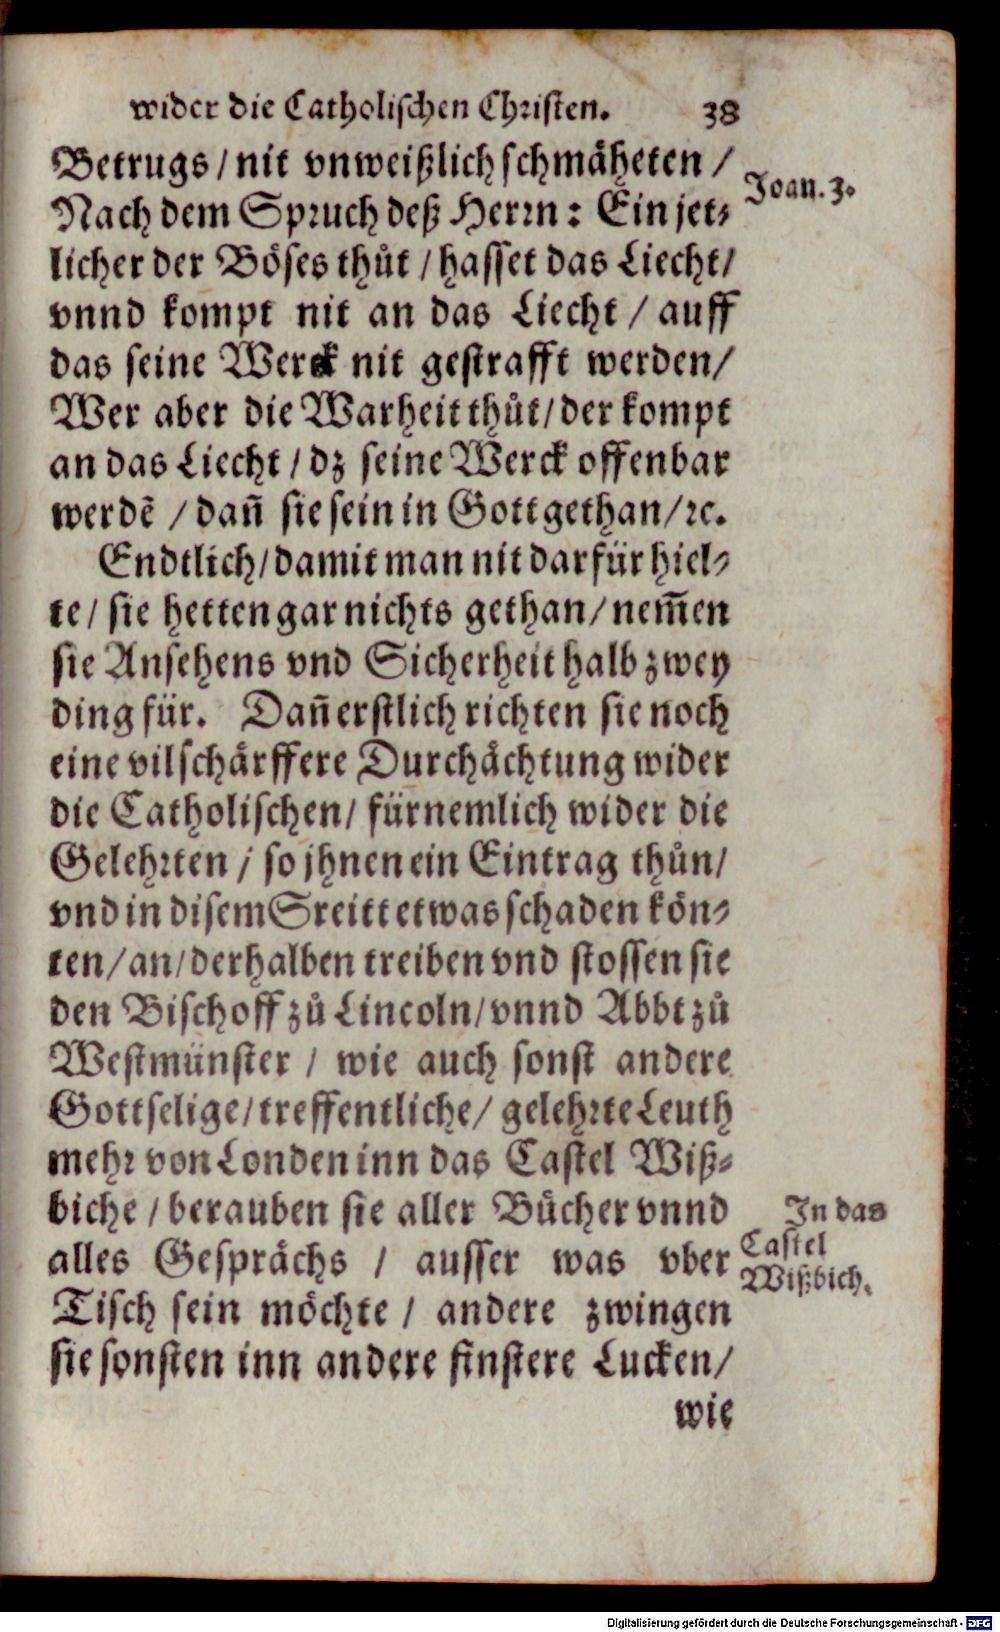 wider die Catholischen Christen. 38
Betrugs / nit vnweißlich schmäheten /
Joan. 3.
Nach dem Spruch deß Herrn : Ein jet⸗
licher der Böses thůt / hasset das Liecht /
vnnd kompt nit an das Liecht / auff
das seine Werck nit gestrafft werden /
Wer aber die Warheit thůt / der kompt
an das Liecht / dz seine Werck offenbar
werdẽ / dañ sie sein in Gott gethan / ꝛc.
Endtlich / damit man nit darfür hiel⸗
te / sie hetten gar nichts gethan / nem̃en
sie Ansehens vnd Sicherheit halb zwey
ding für. Dañ erstlich richten sie noch
eine vil schärffere Durchächtung wider
die Catholischen / fürnemlich wider die
Gelehrten / so jhnen ein Eintrag thůn /
vnd in disem Sreitt etwas schaden kön⸗
ten / an / derhalben treiben vnd stossen sie
den Bischoff zů Lincoln / vnnd Abbt zů
Westmünster / wie auch sonst andere
Gottselige / treffentliche / gelehrte Leuth
mehr von Londen inn das Castel Wiß⸗
biche / berauben sie aller Bücher vnnd
In das
Castel
Wißbich.
alles Gesprächs / ausser was vber
Tisch sein möchte / andere zwingen
sie sonsten inn andere finstere Lucken /
wie
Digitalisierung gefördert durch die Deutsche Forschungsgemeinschaft - DFG